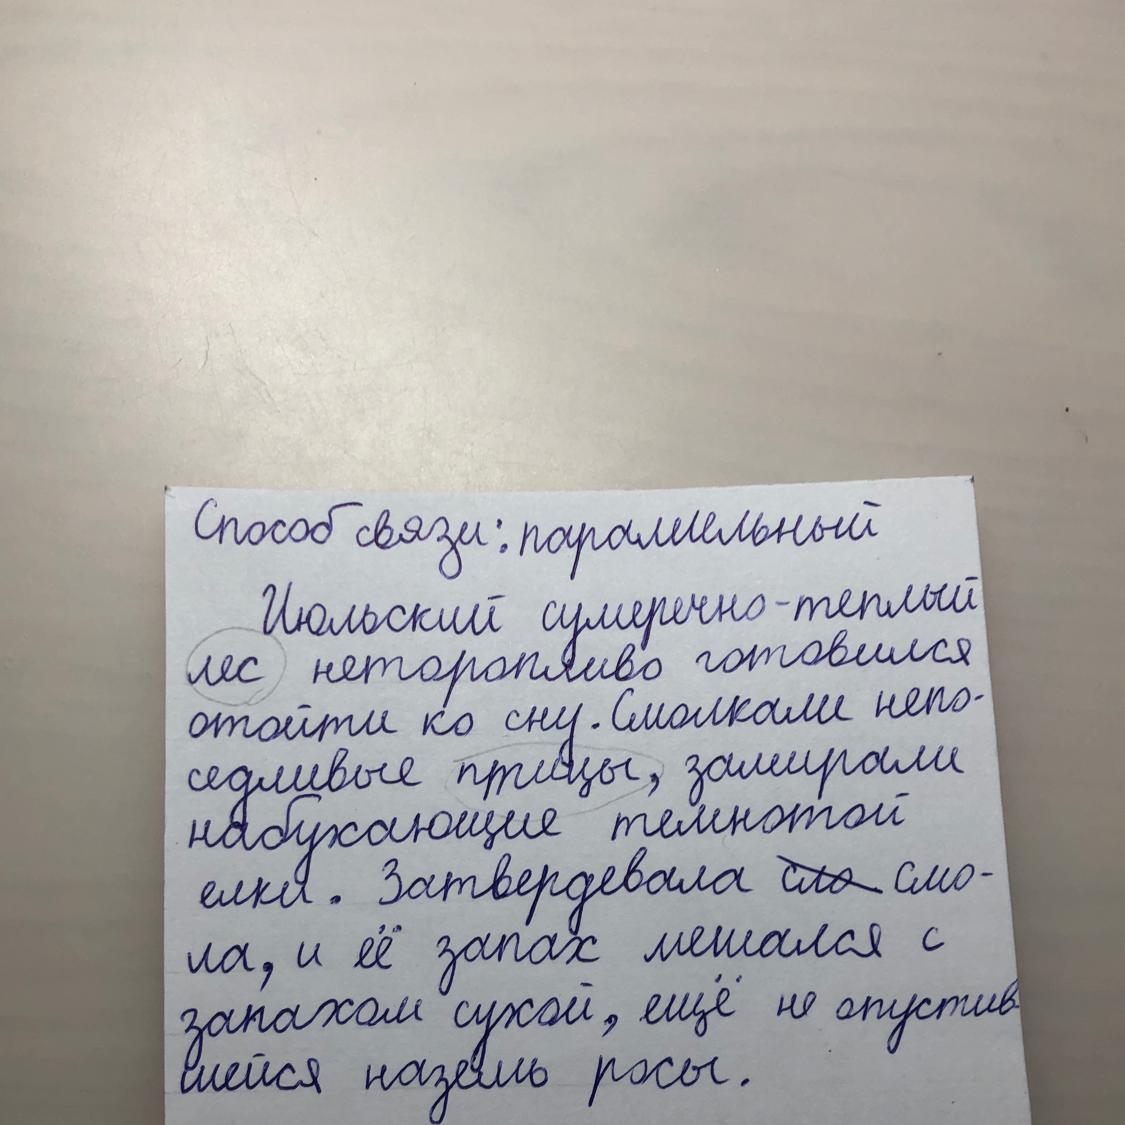 Способ связи: параллельный
Июльский сумеречно-теплый
лес неторопливо готовился
отойти ко сну. Смолкали непо-
седливые птицы, замирали
набухающие темнотой
елки. Затвердевала сло смо-
ла, и её запах мешался с
запахом сухой, ещё не опустив
шейся наземь росы.